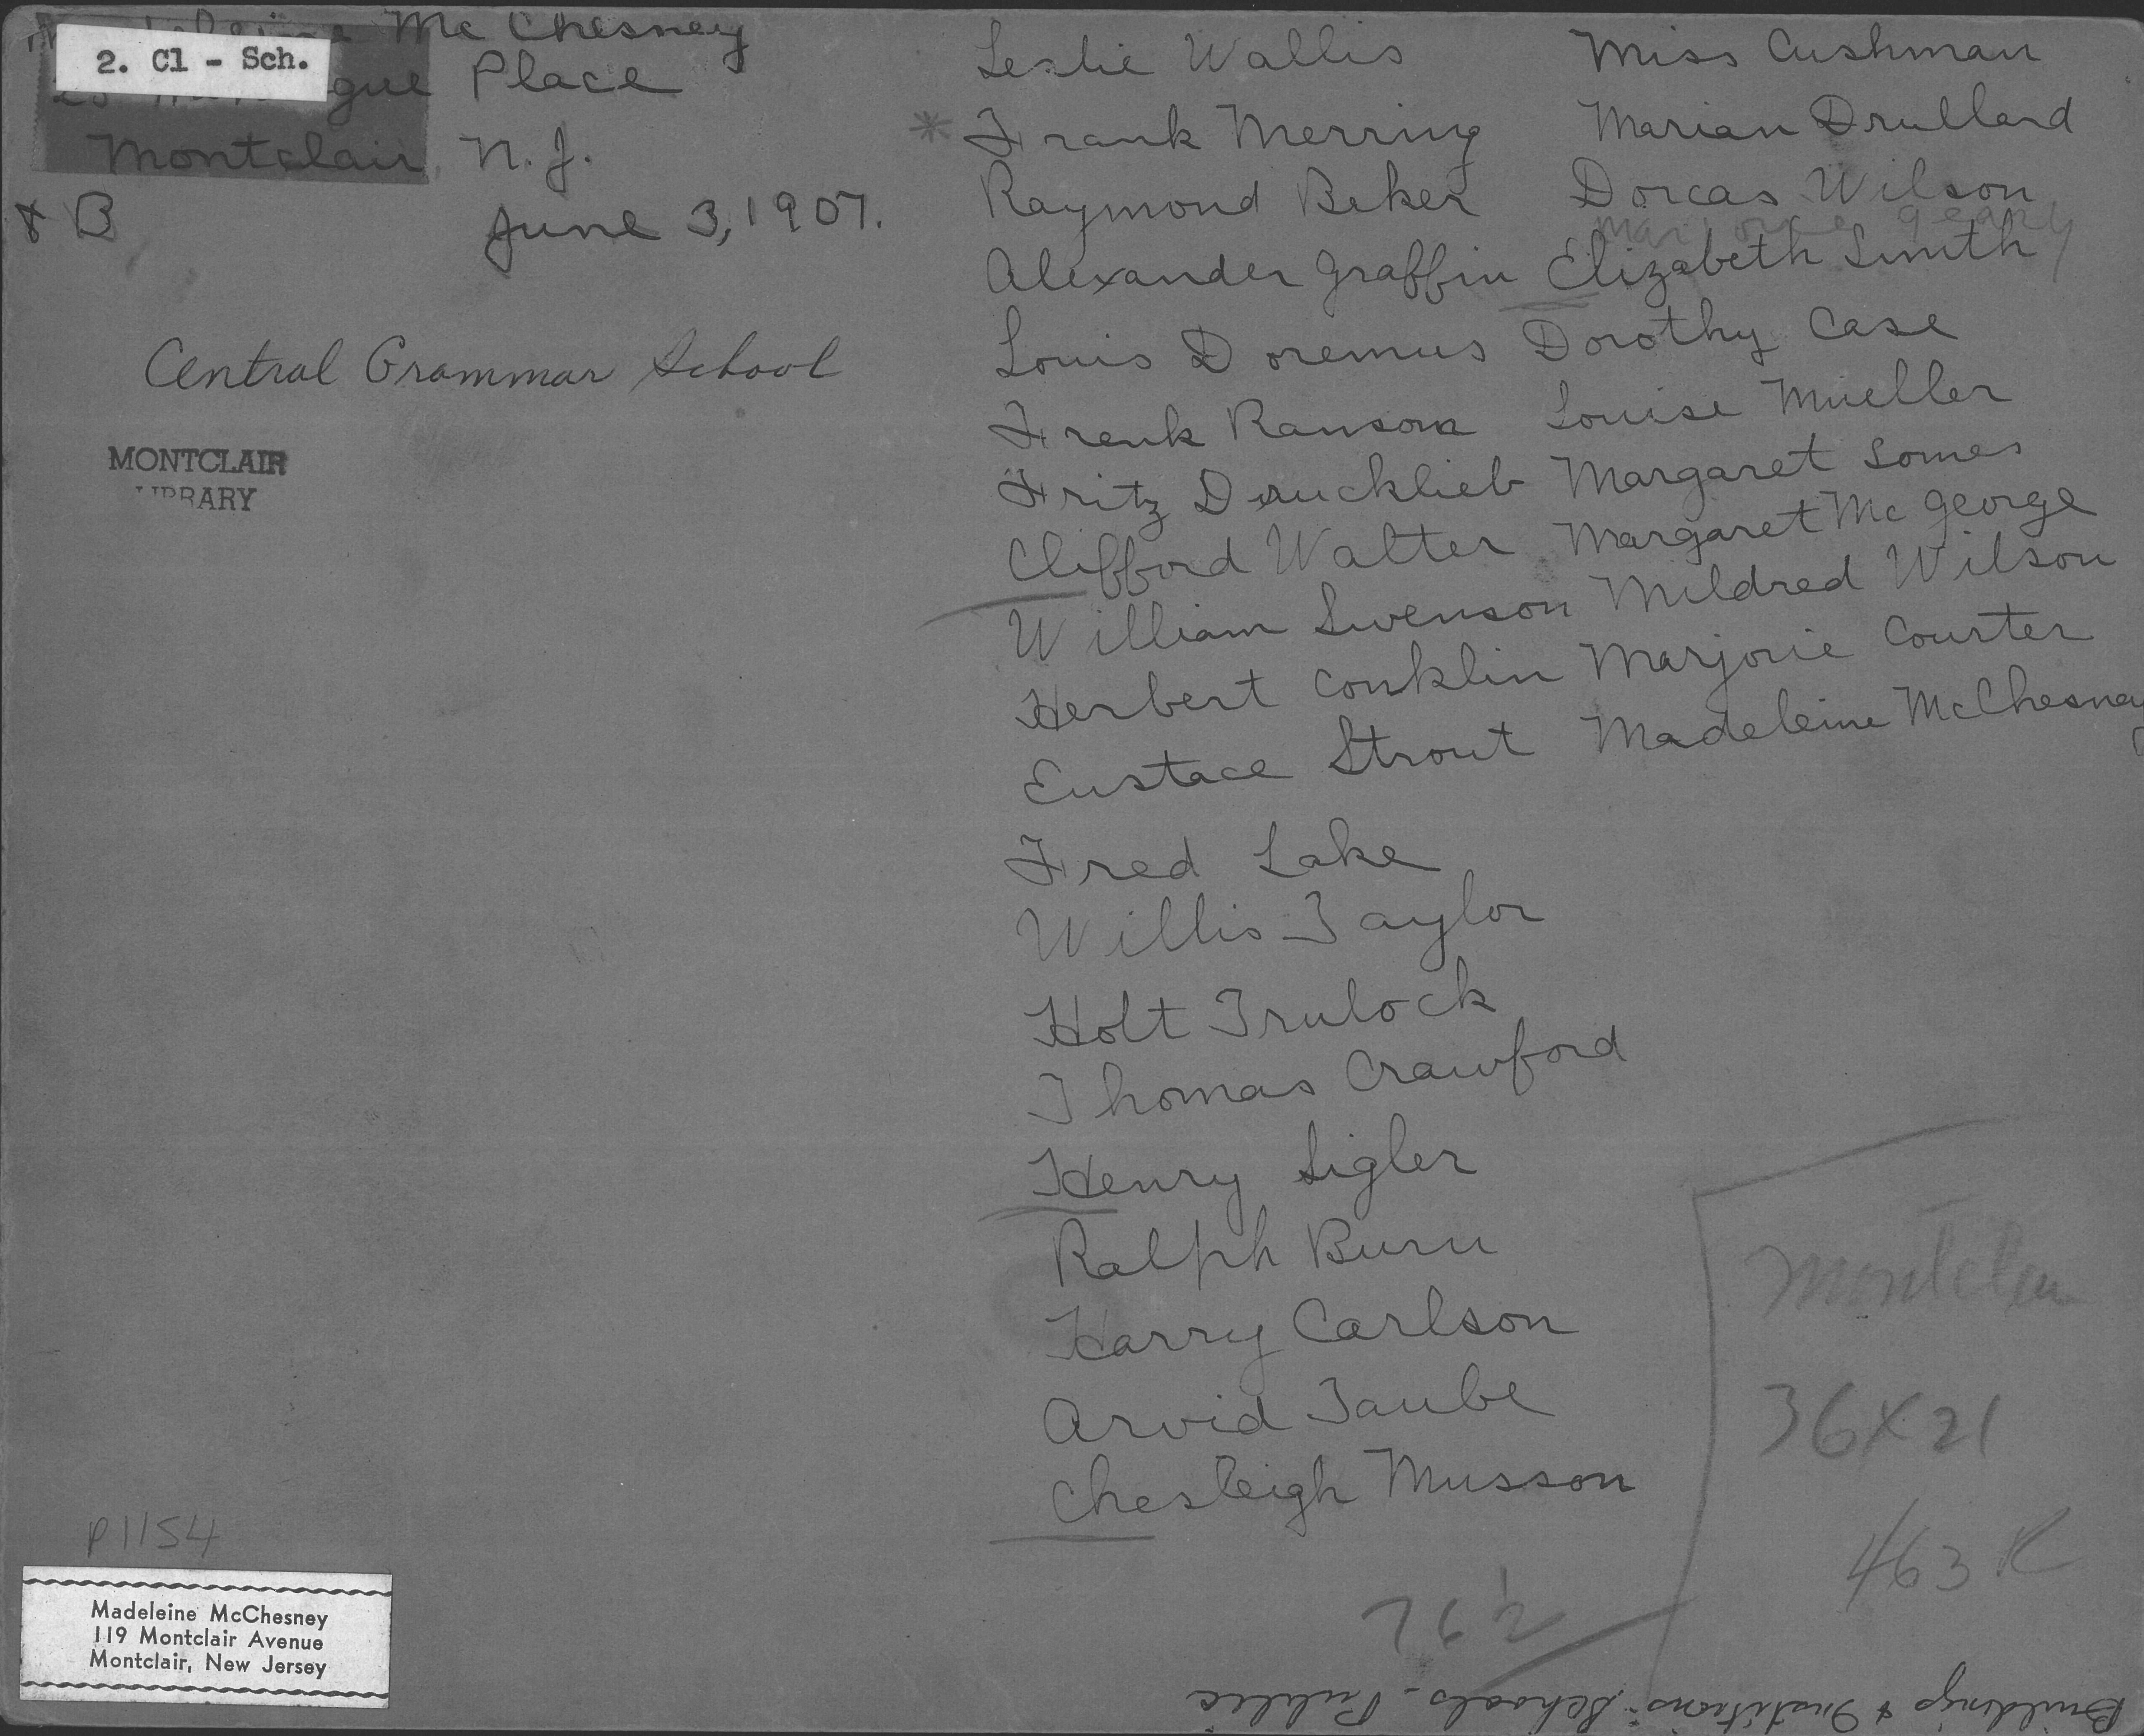 Mc Chesney
2. Cl - Sch.
Place
Montclair, N.J.
& B
June 3, 1907.
Central Grammar School
MONTCLAIR
LIBRARY
Leslie Wallis
* Frank Merring
Raymond Beker
Alexander Graffin
Louis Doremus
Frenk Ransom
Fritz Drucklieb
Clifford Walter
William Swenson
Herbert Conklin
Eustace Strout
Fred Lake
Willis Taylor
Holt Trulock
Thomas Crawford
Henry Sigler
Ralph Burn
Harry Carlson
Arvid Taube
Chesleigh Musson
Miss Cushman
Marian Drullard
Dorcas Wilson
Marjorie Geary
Elizabeth Smith
Dorothy Case
Louise Mueller
Margaret Somes
Margaret McGeorge
Mildred Wilson
Marjorie Courter
Madeleine McChesney
Montclair
36 X 21
463 K
76 1/2
P1154
Madeleine McChesney
119 Montclair Avenue
Montclair, New Jersey
Buildings & Institions - Schools - Public